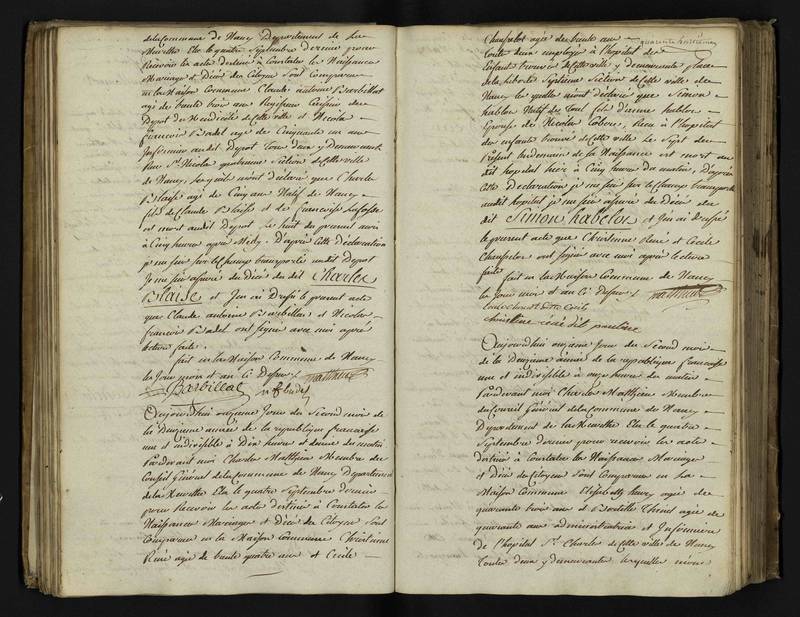 de la Commune de Nancy Departement de la
Meurthe Elu le quatre Septembre dernier pour
Recevoir les acte destiné a Constater les Naissance
Mariage et Décès des Citoyen Sont Comparus
en la Maison Commune Claude antoine Barbillat
agé de trente trois ans
Depot de Mendicité de cette ville et Nicolas
françois Badel agé de Cinquante un ans
Infirmier audit Depot tous deux y Demeurants
Rue St. Nicolas quatrieme Section de cette ville
de Nancy, lesquels m'ont déclaré que Charles
Blaise agé de Cinq ans Natif de Nancy
fils de Claude Blaise et de françoise
est mort audit Depot le huit du present mois
à Cinq heures après Midy. D'après cette déclaration
je me suis sur le Champ transporté audit Depot
Je me suis assuré du Décès du dit Charles
Blaise et j'en ai Dressé le present acte
que Claude antoine Barbillat et Nicolas
françois Badel ont signé avec moi après
lecture faite.
fait en la Maison Commune de Nancy
les Jour mois et an Ci Dessus
Barbillat
Aujourd'hui onzieme Jour du Second mois de
la Deuxieme année de la republique française
une et indivisible à Dix heures et demies du matin
Pardevant moi Charles Matthieu Membre du
Conseil Général de la Commune de Nancy Departement
de la Meurthe Elu le quatre Septembre dernier
pour Recevoir les acte destinés à Constater les
Naissance Mariage et Décès des Citoyens Sont
Comparus en la Maison Commune Christienne
René agé de trente quatre ans et Cécile
Chanpelot agée de trente ans
toutes deux employée à l'hopital des
Enfant trouvés de cette ville y demeurante place
de la liberté Septieme Section de cette ville de
Nancy les quelle m'ont déclaré que Simon
hablon Natif de Toul fils d'
Epouse de Nicolas hier à l'hopital
des enfants trouvé de cette ville le Sept du
Present de sa Naissance est mort au
dit hopital hier à Cinq heures du matin, D'après
cette Declaration je me suis sur le Champ transporté
audit hopital je me suis assuré du Décès du
dit Simon hablon et j'en ai Dressé
le present acte que Christienne René et Cecile
Chanpelot ont signé avec moi après lecture
faite
fait en la Maison Commune de Nancy
les Jour mois et an Ci Dessus
Aujourd'hui onzieme Jour du Second mois
de la Deuxieme année de la republique française
une et indivisible à onze heures du matin
Pardevant moi Charles Matthieu Membre
du Conseil Général de la Commune de Nancy
Departement de la Meurthe Elu le quatre
Septembre dernier pour recevoir les acte
destiné à Constater les Naissance Mariage
et Décès des Citoyens Sont Comparus en la
Maison Commune Elisabeth agée de
quarante trois ans et agée de
quarante ans administratrice et Infirmiere
de l'hopital St. Charles de cette ville de Nancy
toutes deux y demeurantes lesquelles m'ont